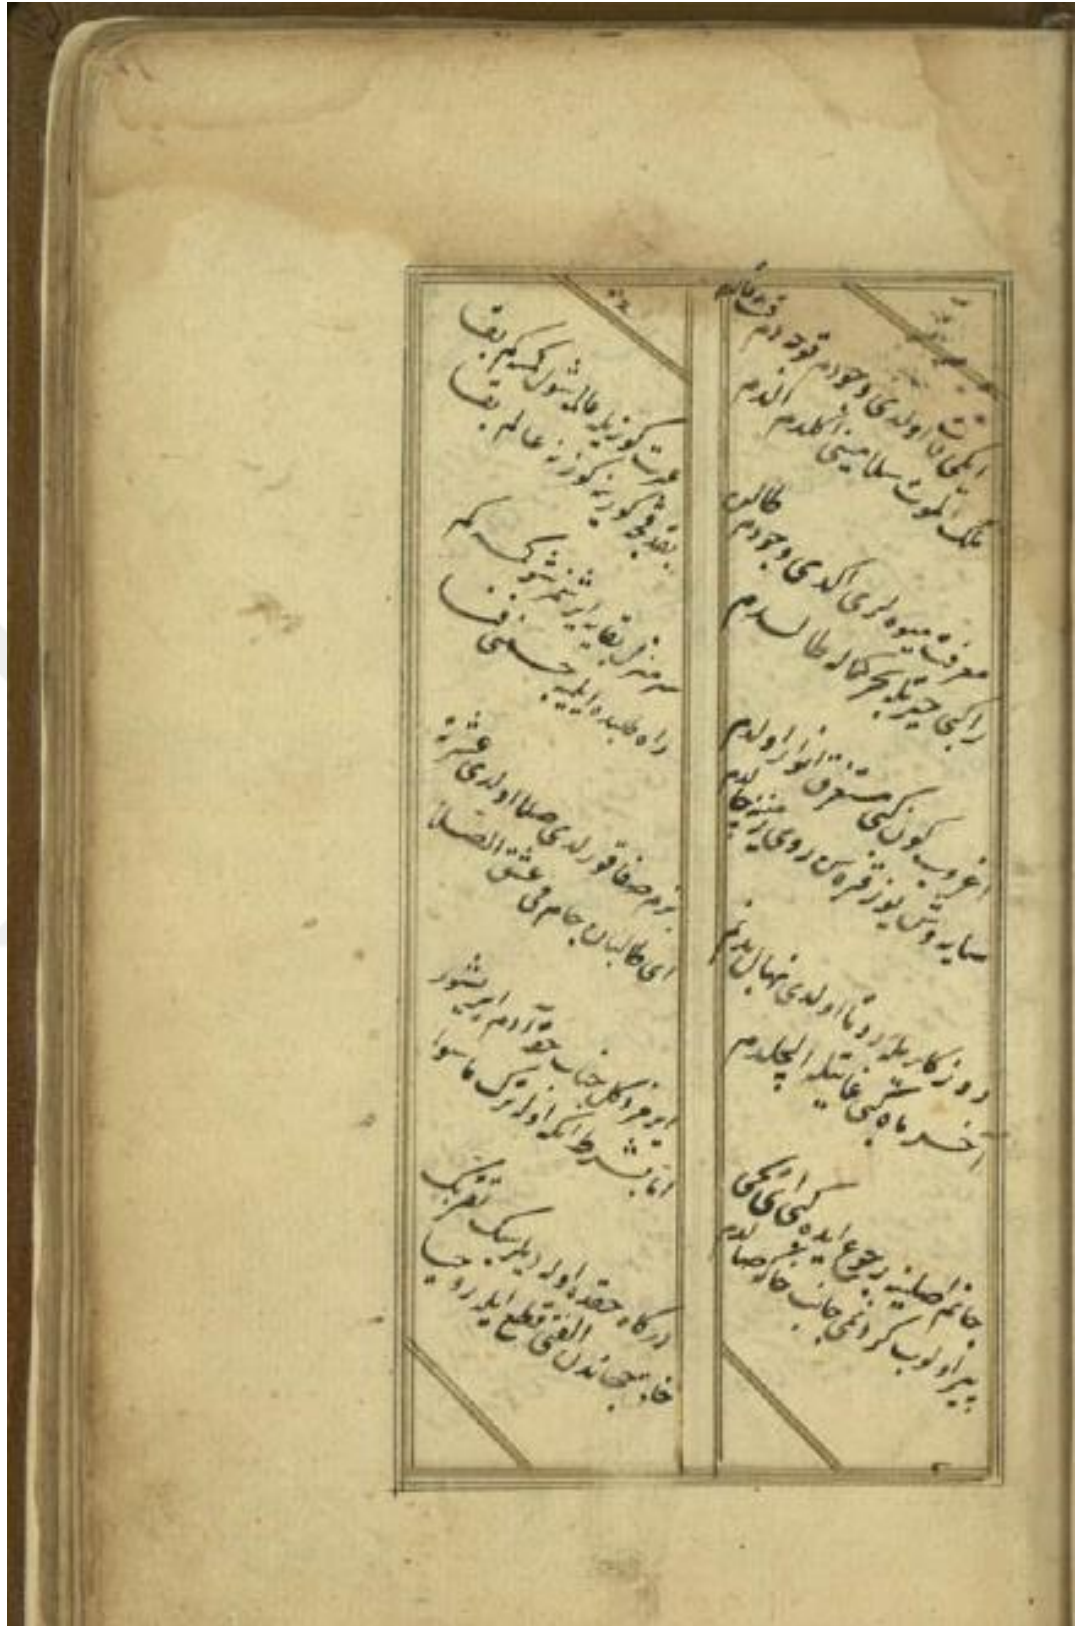 ایکی قات اولدی وجودم قوجه دم
ملک الموت سلامینی اکلدم الدم
معرفت میوه لری اکدی وجودم
راکبی حیرتله بحر کماله طالدم
غروب کون کبی مستغرق انوار اولدم
سایه وش یوز قره سن روی زمینه چالدم
روزکاریله دوتا اولدی نهال بدنم
آخر ماه کبی غایتله الچلدم
جانم اصلینه رجوع ایده کبی
پیر اولوب کردنمی جانب خاکه صالدم
عبرت کوزیله عالمه شول کسه کم بقا
بقدقجه کورینه کوزنه عالم بقا
سر منزل بقایه ایرشمز شو کسه کم
راه طلبده ایلمیه جسمنی فنا
بزم صفا قورلدی صلا اولدی عشرته
ای طالبان جام می عشق الصلا
ایرمز دکل جنابه آدم ایریشور
اما بشرط آنکه اوله ترک ماسوا
درکاه حقده اوله دیلرسک تقربک
جاندن الفتی قطع ایله روحیا